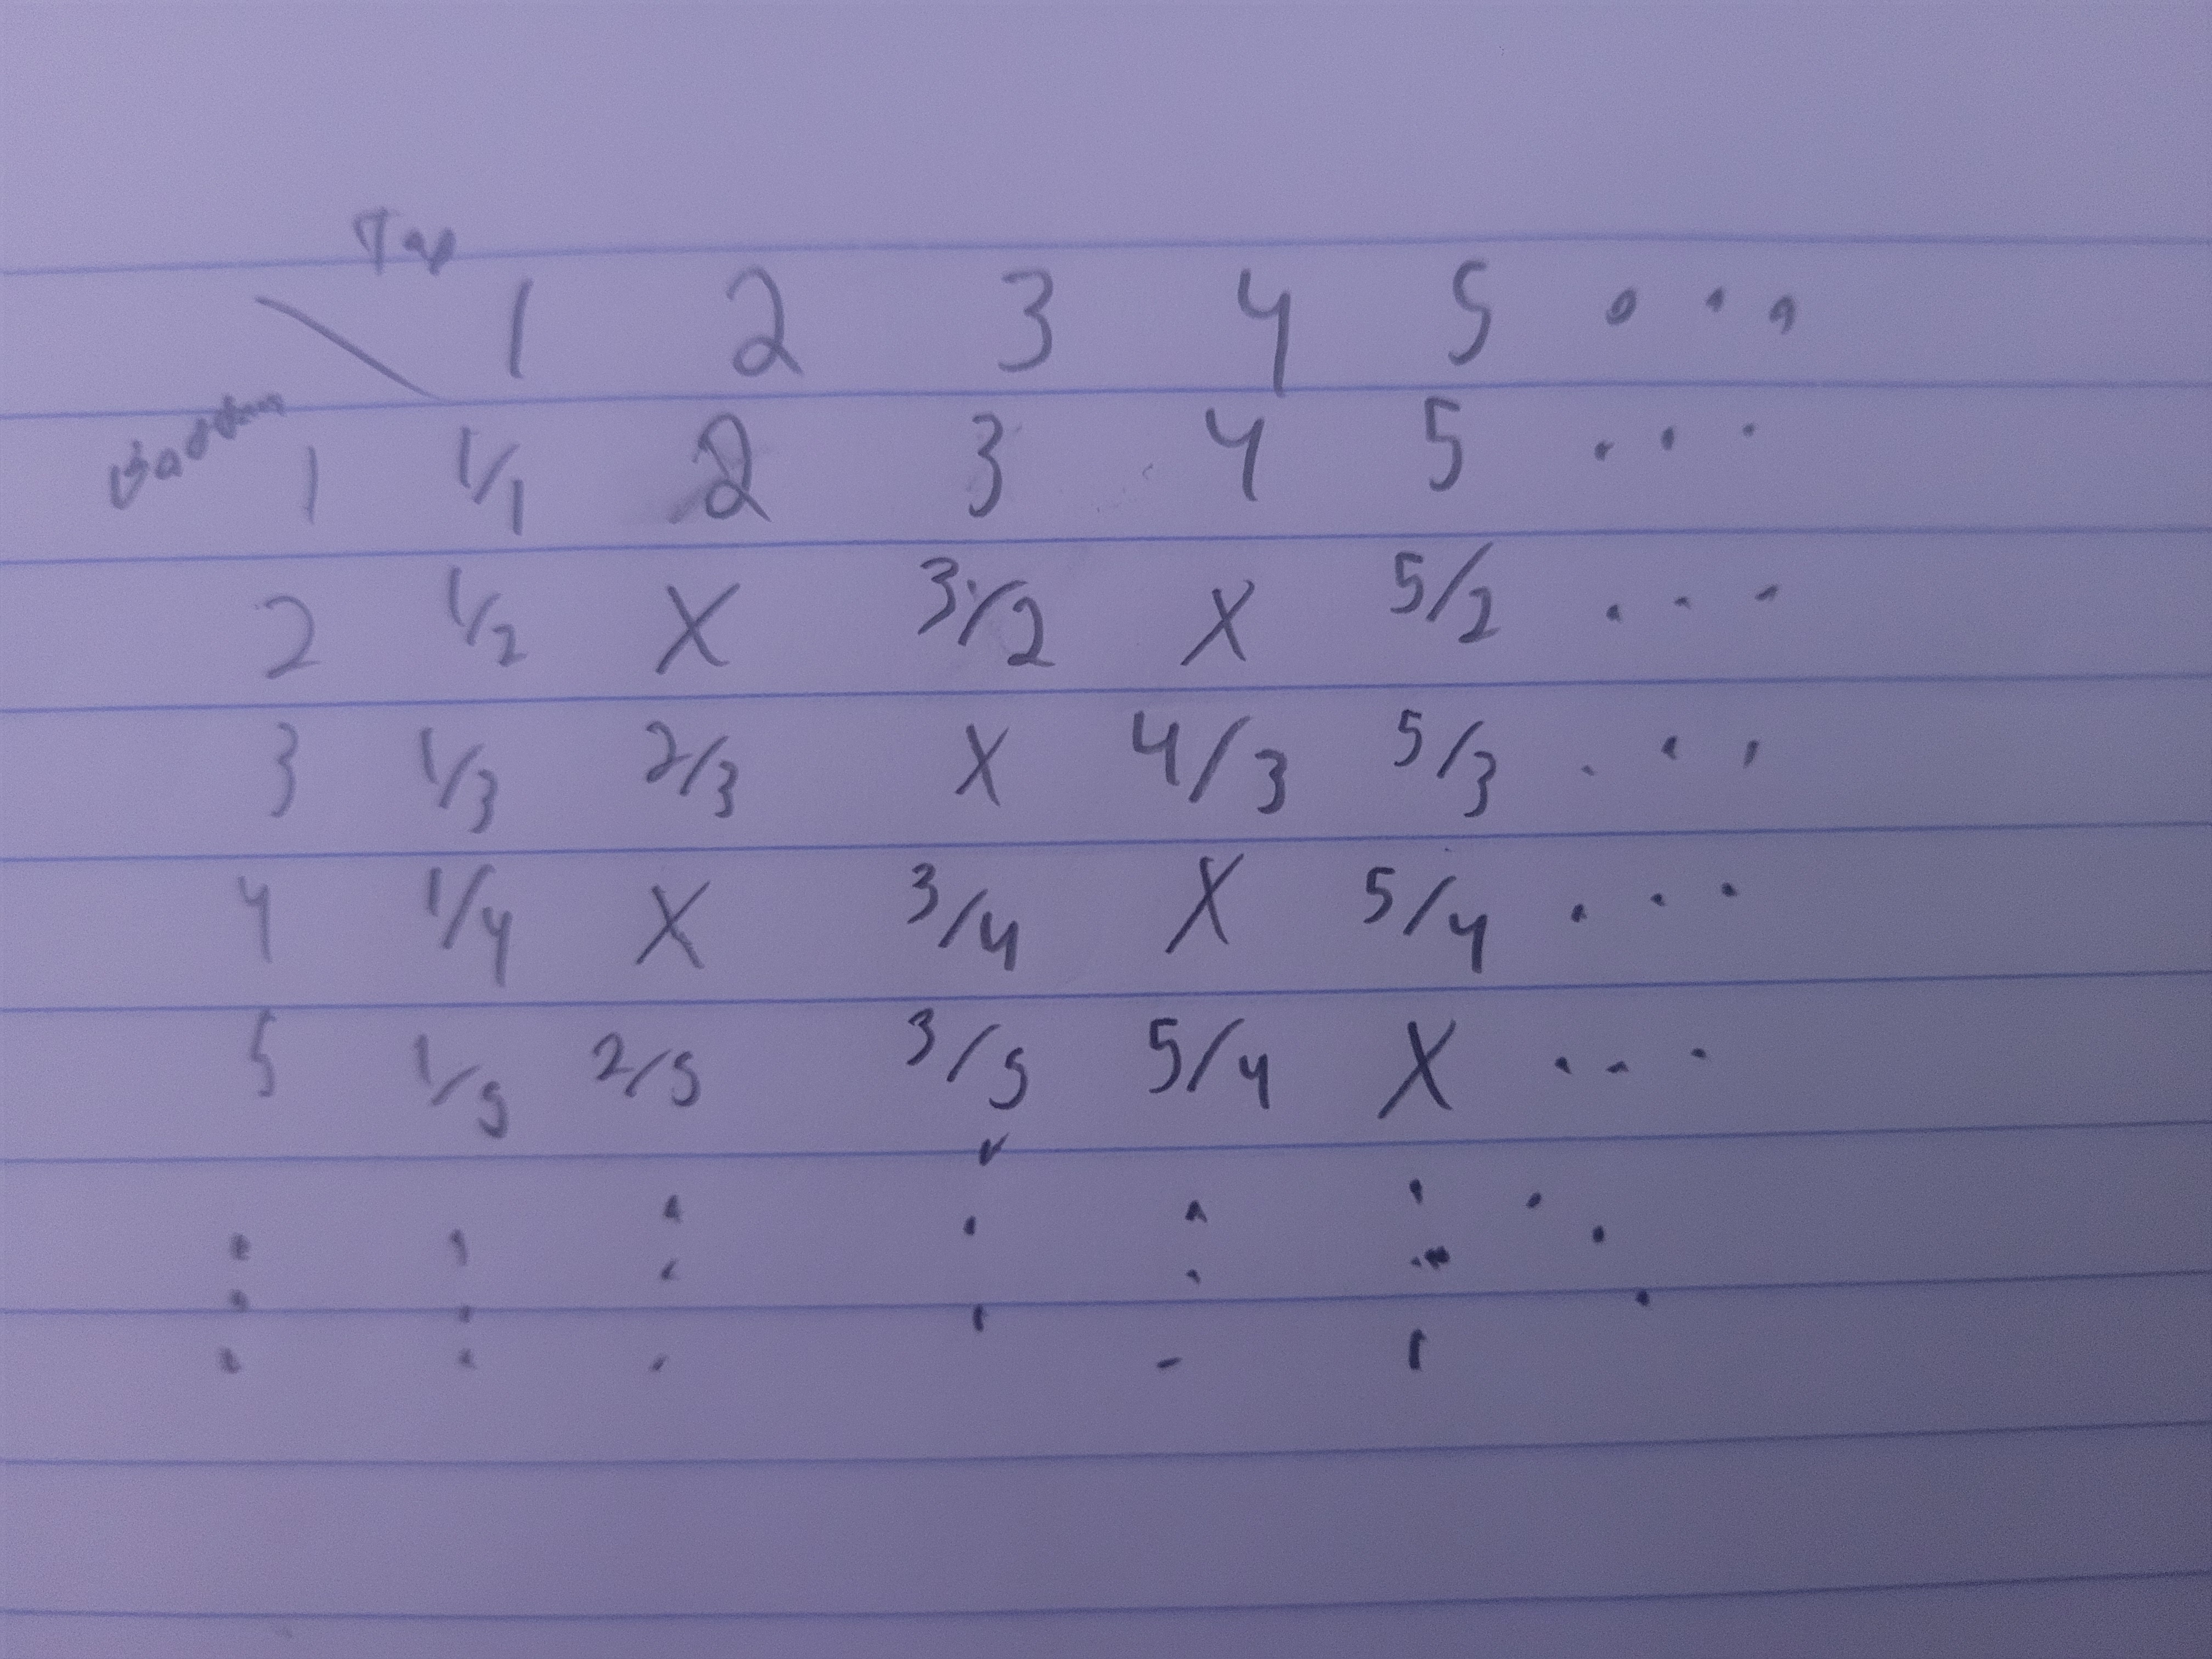 Top
1 2 3 4 5 ...
Bottom 1 1/1 2 3 4 5 ...
2 1/2 X 3/2 X 5/2 ...
3 1/3 2/3 X 4/3 5/3 ...
4 1/4 X 3/4 X 5/4 ...
5 1/5 2/5 3/5 5/4 X ...